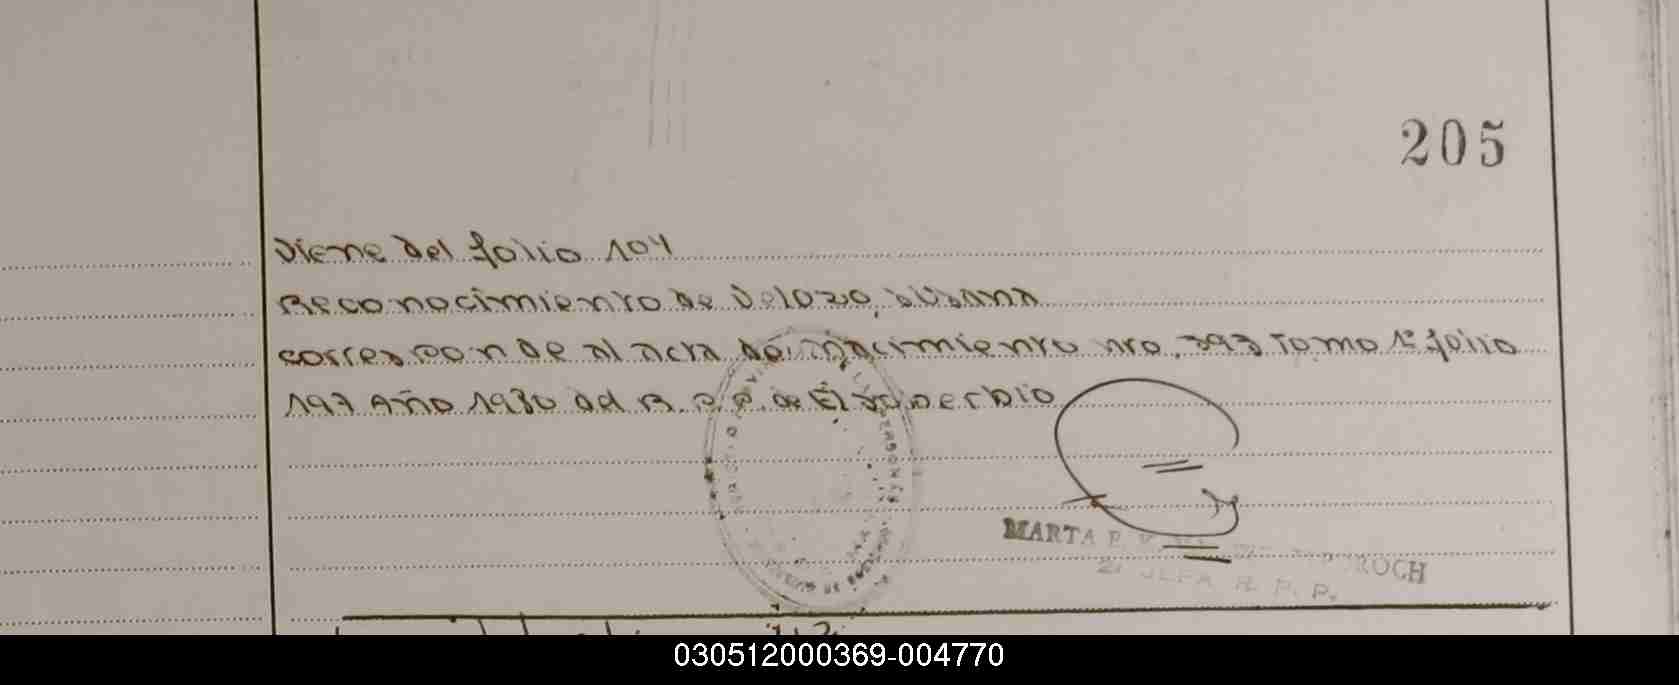 205
Viene del folio 104
Reconocimiento de Velozo, Susana
corresponde al acta de nacimiento nro. 393 Tomo 1º folio
197 Año 1980 del R.P.P. de El Soberbio
MARTA
2º JEFA R. P. P.
030512000369-004770